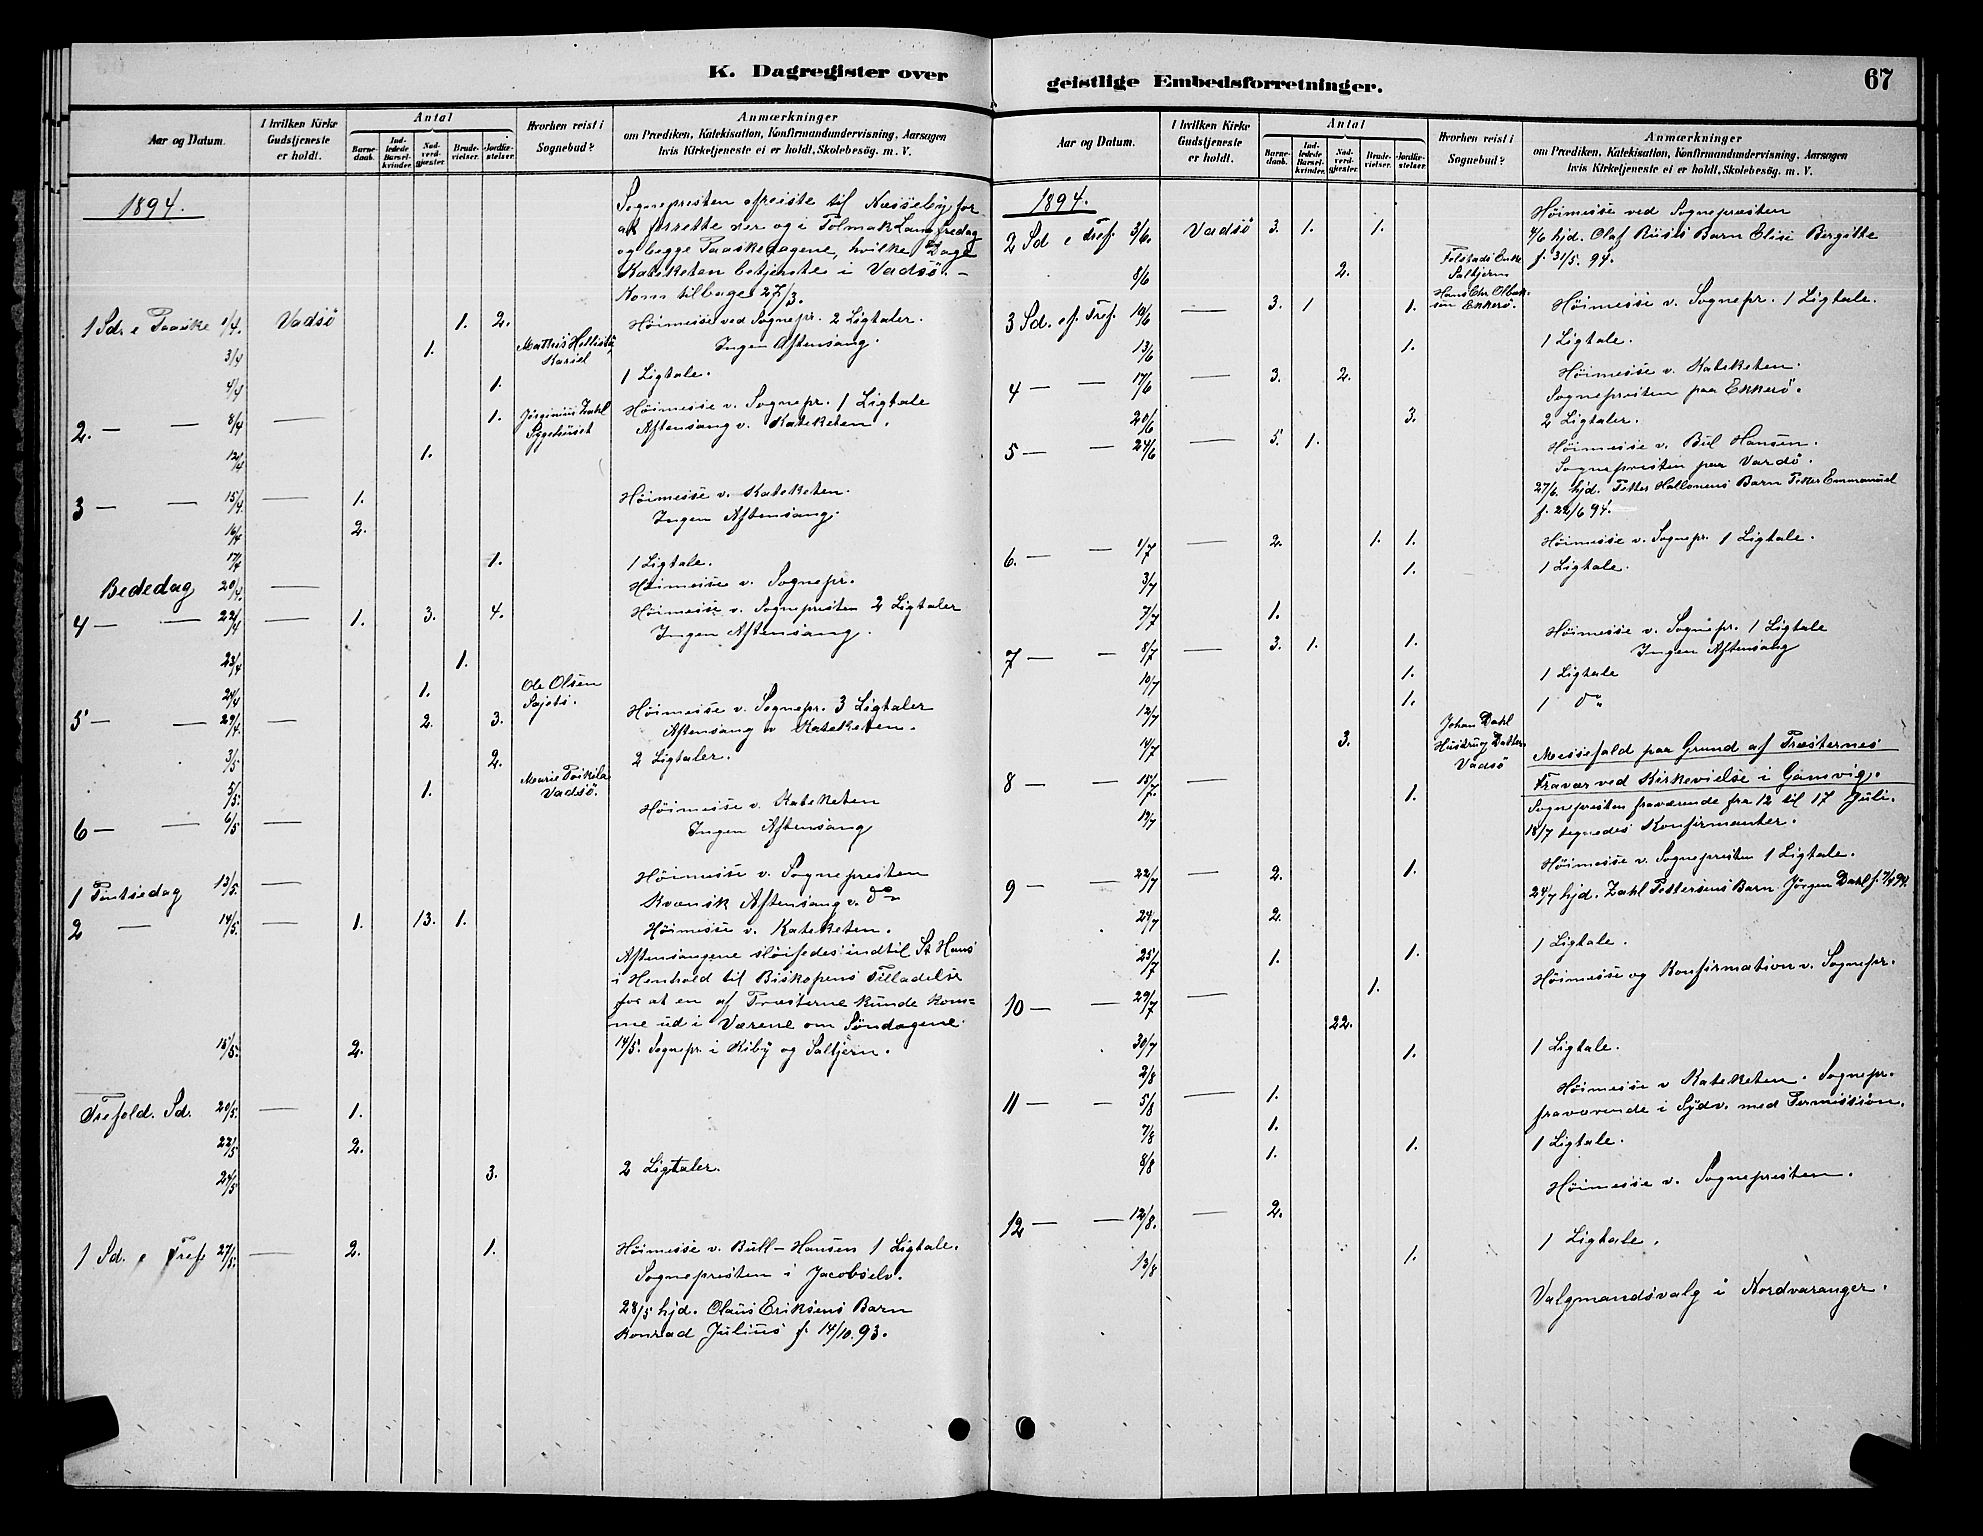 K. Dagregister over
Aar og Datum.
I hvilken Kirke Gudstjeneste er holdt.
Antal
Barnedaab.
Indledede Barselkvinder.
Nadverdgjester.
Brudevielser.
Jordfæstelser.
Hvorhen reist i Sognebud?
Anmærkninger
om Prædiken, Katekisation, Konfirmandundervisning, Aarsagen
hvis Kirketjeneste ei er holdt, Skolebesøg. m. V.
1894.
Sognepresten afreiste til Næsseby for
at forrette der og i Polmak Langfredag
og begge Paaskedagene, hvilke Dage
Katekheten betjente i Vadsö. –
Kom tilbage 27/3.
1 Sd. e Paaske 1/4. Vadsö 1. 2. Höimesse ved Sognepr. 2 Ligtaler.
3/4 1. Mathis Kariel Ingen Aftensang.
4/4 1. 1 Ligtale.
2. — — 8/4 — 1. Jörginius Zahl Sygehuset Höimesse v. Sognepr. 1 Ligtale
Aftensang v. Kateketen.
12/4 1.
3 — — 15/4 — 1. Höimesse v. Kateketen.
Ingen Aftensang.
16/4 2.
17/4 1. 1 Ligtale.
Bededag 20/4. — Höimesse v. Sognepr.
4 — — 22/4 — 1. 3. 4. Höimesse v. Sognepresten 2 Ligtaler
Ingen Aftensang.
23/4 1.
24/4 1. Ole Olsen
5 — — 29/4. — 2. 3. Höimesse v. Sognepr. 3 Ligtaler
Aftensang v Kateketen.
3/5 2. 2 Ligtaler.
5/5. 1. Marie Poikila Vadsö.
6 — — 6/5 — Höimesse v. Kateketen
Ingen Aftensang
1 Pintsedag 13/5. — Höimesse v. Sognepresten
Kvænsk Aftensang v. do
2 — 14/5. — 1. 13. 1. Höimesse v. Kateketen.
Aftensangene slöifedes indtil St Hans
i Henhold til Biskopens Tilladelse
for at en af Præsterne kunde kom=
me ud i Værene om Söndagene.
14/5. Sognepr. i Kiby og Saltjern.
15/5. 2.
Trefold. Sd. 20/5. — 1.
22/5 2.
24/5 3. 2 Ligtaler.
1 Sd. e Tref 27/5. — 2. 1. Höimesse v. Bull-Hansen 1 Ligtale.
Sognepresten i Jacobselv.
28/5 hjd. Olaus Eriksens Barn
Konrad Julius f. 14/10. 93.
geistlige Embedsforretninger.
67
Aar og Datum.
I hvilken Kirke Gudstjeneste er holdt.
Antal
Barnedaab.
Indledede Barselkvinder.
Nadverdgjester.
Brudevielser.
Jordfæstelser.
Hvorhen reist i Sognebud?
Anmærkninger
om Prædiken, Katekisation, Konfirmandundervisning, Aarsagen
hvis Kirketjeneste ei er holdt, Skolebesøg. m. V.
1894.
2 Sd e Tref. 3/6. Vadsö 3. 1. 1. Höimesse ved Sognepresten
4/6 hjd. Olaf Barn Elise Birgitte
f. 31/5. 94.
8/6 2. Folstads Enke Saltjern
3 Sd. ef. Tref. 10/6 — 3. 1 1. Hans Chr Olbeksen Ekkerö. Höimesse v. Sognepr. 1 Ligtale.
13/6 1. 1 Ligtale.
4 — — 17/6 — 3. 2. Höimesse v. Kateketen.
Sognepresten paa Ekkerö.
20/6 3. 2 Ligtaler.
5 — — 24/6 — 5. 1. Höimesse v. Bul Hansen.
Sognepresten paa Vardö.
27/6. hjd. Petter Hallonens Barn Petter Emmanuel
f. 22/6 94.
6. — — 1/7 — 2. 1. 1. Höimesse v. Sognepr. 1 Ligtale.
3/7 1. 1 Ligtale.
7/7 1.
7 — — 8/7 — 3. 1. 1. Höimesse v. Sognepr. 1 Ligtale
Ingen Aftensang
10/7 1. 1 Ligtale
12/7 1. 1 do
14/7 3. Johan Dahl Hustru og Datter Vadsö
8 — — 15/7. — Messefald paa Grund af Præsternes
Fravær ved Kirkevielse i Gamvig.
Sognepresten fraværende fra 12 til 17 Juli.
18/7 tegnedes Konfirmanter.
19/7 1.
9 — — 22/7 — 2. 1. Höimesse v. Sognepresten 1 Ligtale.
24/7 hjd. Zahl Pettersens Barn Jörgen Dahl f. 7/4 94.
24/7 2.
25/7 1. 1. 1 Ligtale.
10 — — 29/7 — 1. Höimesse og Konfirmation v. Sognepr.
30/7 22.
2/8 1. 1 Ligtale.
11 — — 5/8 — 1. Höimesse v Kateketen. Sognepr.
fraværende i Sydv. med Permission.
7/8 1.
8/8 1. 1. 1 Ligtale.
12 — — 12/8. — 2. Höimesse v. Sognepresten.
13/8 1. 1 Ligtale.
Valgmandsvalg i Nordvaranger.